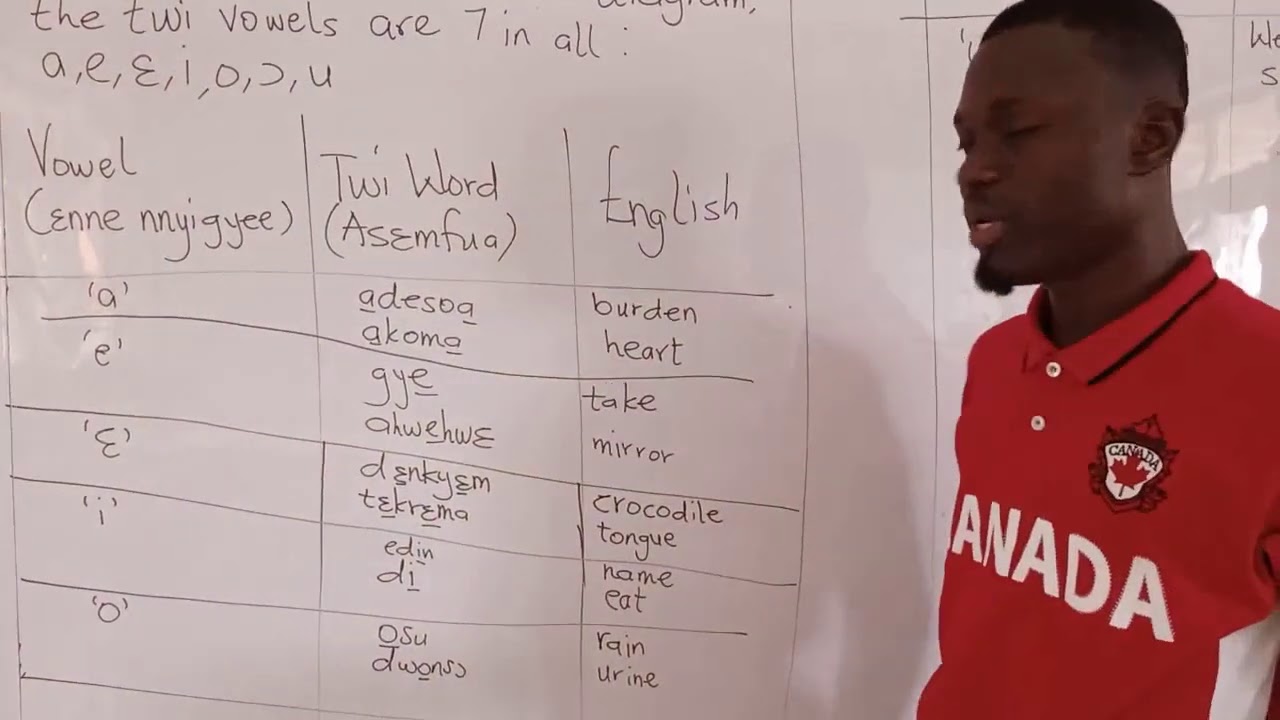 diagram,
the twi vowels are 7 in all :
a, e, ɛ, i, o, ɔ, u
Vowel
(ɛnne nnyigyee)
Twi Word
(Asɛmfua)
English
'a'
adesoa
burden
akoma
heart
'e'
gye
take
ahwehwɛ
mirror
'ɛ'
dɛnkyɛm
crocodile
tɛkrɛma
tongue
'i'
edin
name
di
eat
'o'
osu
rain
dwonsɔ
urine
CANADA
ANADA